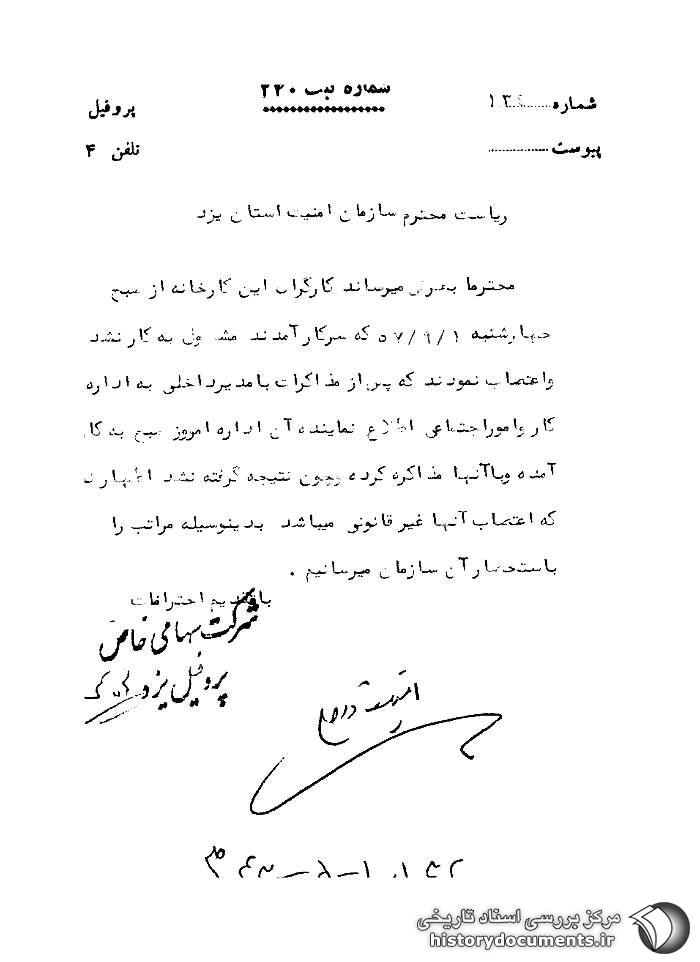 شماره ثبت ۲۴۰
شماره
پروفیل
پیوست
تلفن ۴
ریاست محترم سازمان امنیت استان یزد
محترما بعرض میرساند کارگران این کارخانه از صبح
چهارشنبه ۵۷/۹/۱ که سرکار آمدند مشغول به کار نشد
واعتصاب نمودند که پس از مذاکرات بامدیرداخلی به اداره
کار وامور اجتماعی اطلاع نماینده آن اداره امروز صبح به کار
آمده وباآنها مذاکره کرده وچون نتیجه گرفته نشد اظهار
که اعتصاب آنها غیر قانونی میباشد بدینوسیله مراتب را
باستحضار آن سازمان میرسانیم .
باتقدیم احترامات
شرکت سهامی خاص
پروفیل یزد
مرکز بررسی اسناد تاریخی
historydocuments.ir